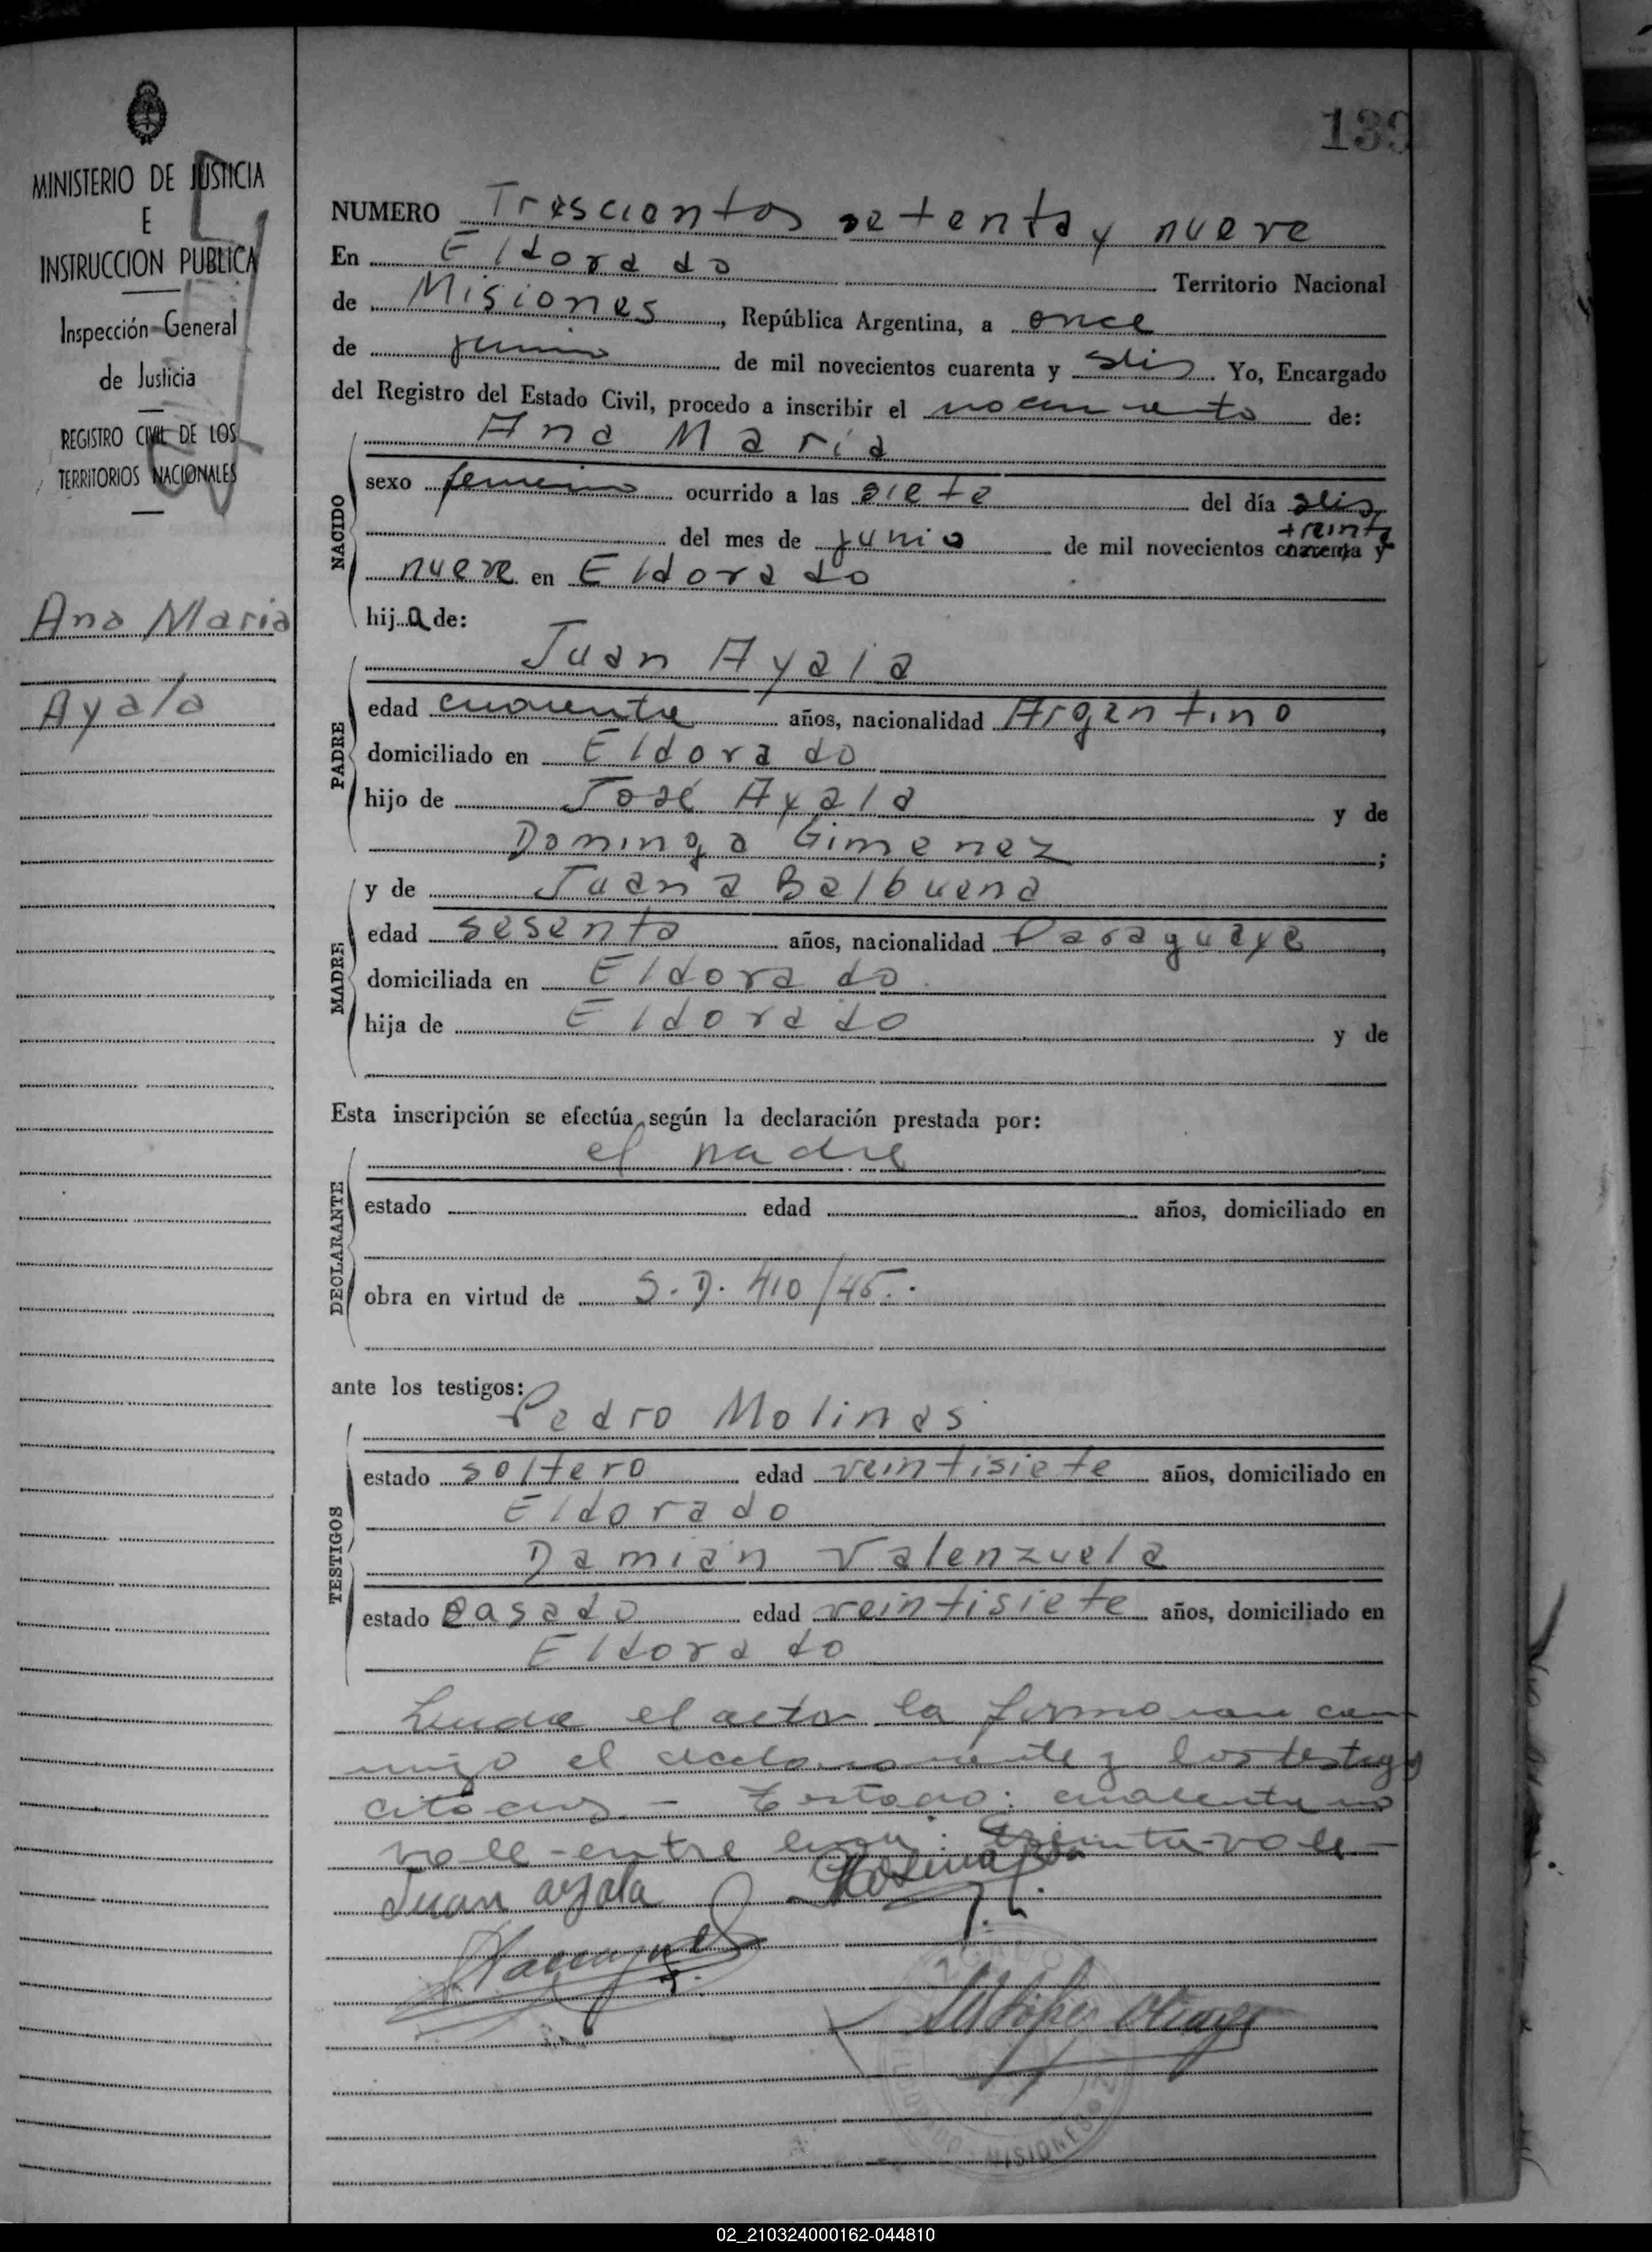 139
MINISTERIO DE JUSTICIA
E
INSTRUCCION PUBLICA
Inspección General
de Justicia
REGISTRO CIVIL DE LOS
TERRITORIOS NACIONALES
Ana Maria
Ayala
NUMERO Trescientos setenta y nueve
En Eldorado Territorio Nacional
de Misiones, República Argentina, a once
de junio de mil novecientos cuarenta y seis. Yo, Encargado
del Registro del Estado Civil, procedo a inscribir el nacimiento de:
Ana María
NACIDO
sexo femenino ocurrido a las siete del día seis
treinta
del mes de junio de mil novecientos cuarenta y
nueve en Eldorado
hija de:
Juan Ayala
PADRE
edad cuarenta años, nacionalidad Argentino,
domiciliado en Eldorado
hijo de José Ayala y de
Dominga Gimenez;
y de Juana Balbuena
MADRE
edad sesenta años, nacionalidad Paraguaya,
domiciliada en Eldorado
hija de Eldorado y de
Esta inscripción se efectúa según la declaración prestada por:
el padre
DECLARANTE
estado edad años, domiciliado en
obra en virtud de S.D. 410/45.
ante los testigos:
Pedro Molinas
TESTIGOS
estado soltero edad veintisiete años, domiciliado en
Eldorado
Damián Valenzuela
estado casado edad veintisiete años, domiciliado en
Eldorado
Leida el acta la firmaron con
migo el declarante y los testigos
citados.- Testado: cuarenta no
vale-entre linea: treinta-vale-
Juan ayala
ELDORADO MISIONES
02_210324000162-044810